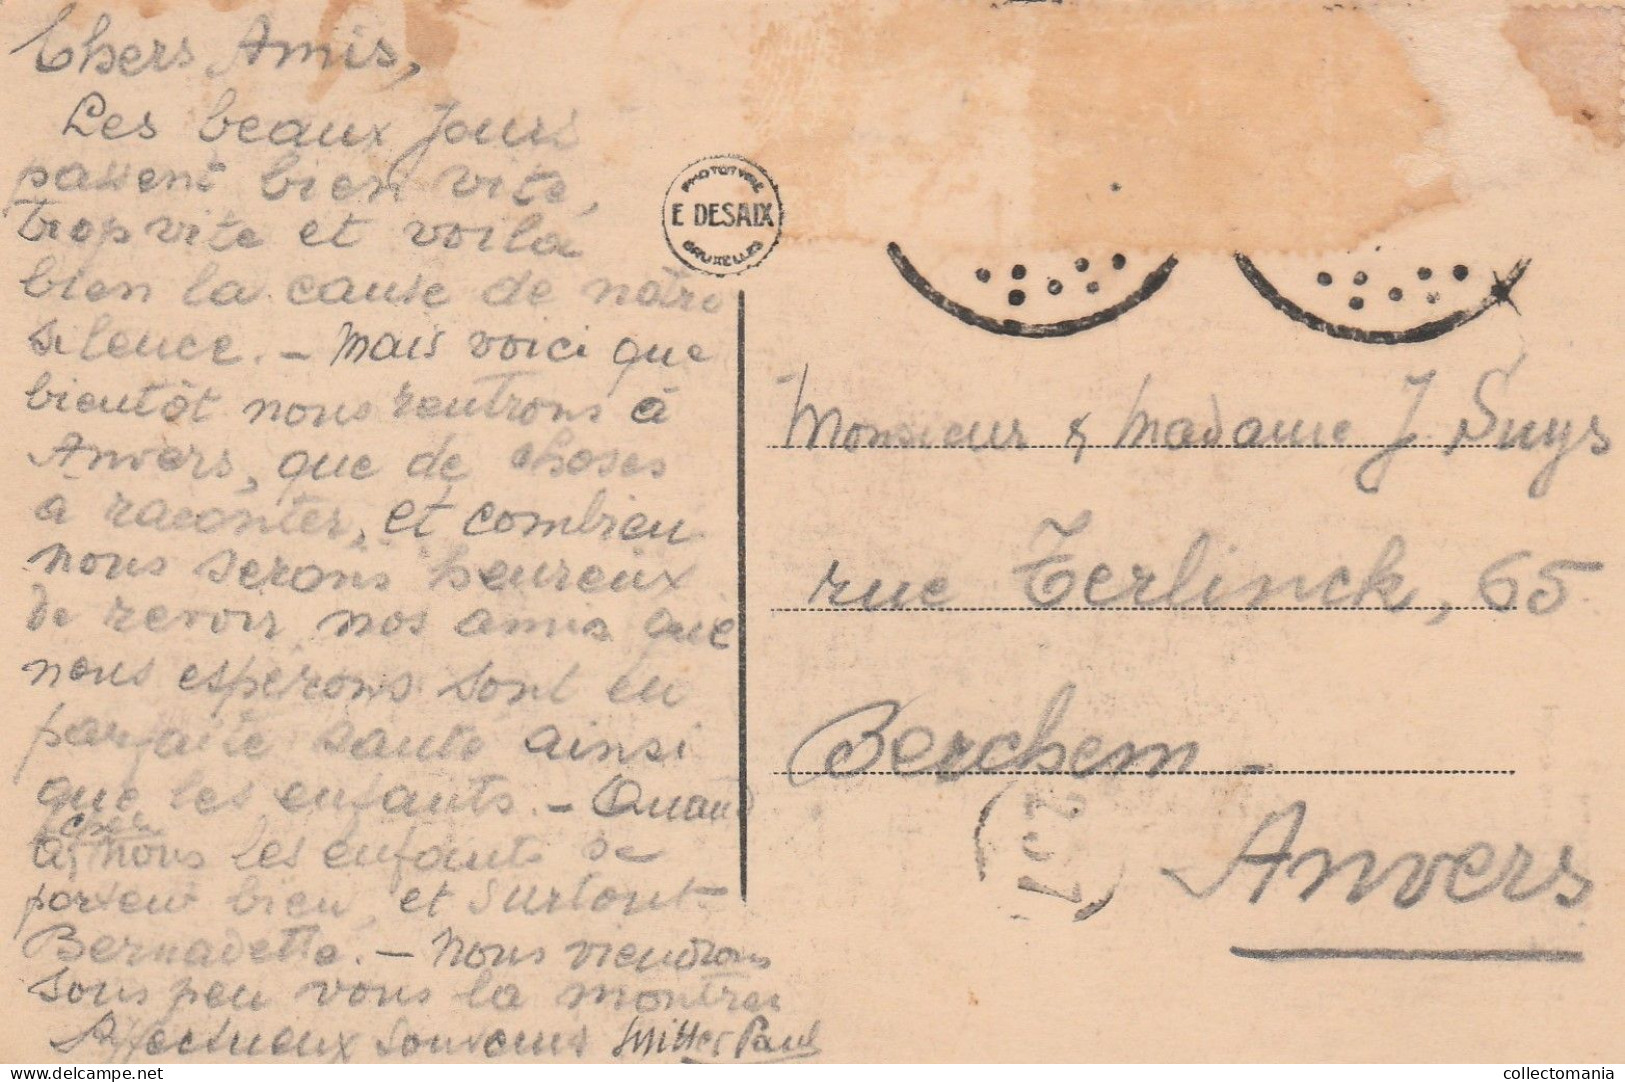 Chers Amis,
Les beaux jours
passent bien vite,
trop vite et voilà
bien la cause de notre
silence. - Mais voici que
bientôt nous rentrons à
Anvers, que de choses
à raconter, et combien
nous serons heureux
de revoir nos amis que
nous espérons sont en
parfaite santé ainsi
que les enfants. - Quand
chez
à, nous les enfants se
portent bien, et surtout
Bernadette. - Nous viendrons
sous peu vous la montrer
Affectueux souvenirs Paul
PHOTOTYPIE
E DESAIX
BRUXELLES
Monsieur & Madame J Suys
rue Terlinck, 65
Berchem -
Anvers
delcampe.net
collectomania